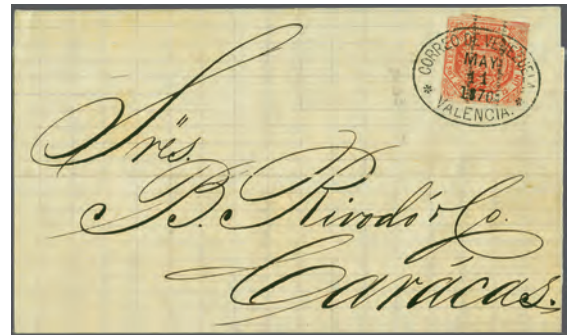 CORREO DE VENEZUELA
MAY
11
1870
* VALENCIA. *
Srēs.
B. Rivodó & Co.
Carácas.